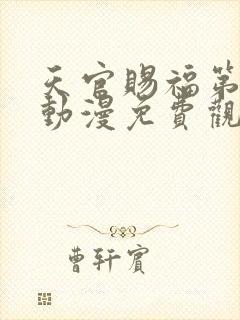 天官賜福第
動漫免費觀
曹軒賓